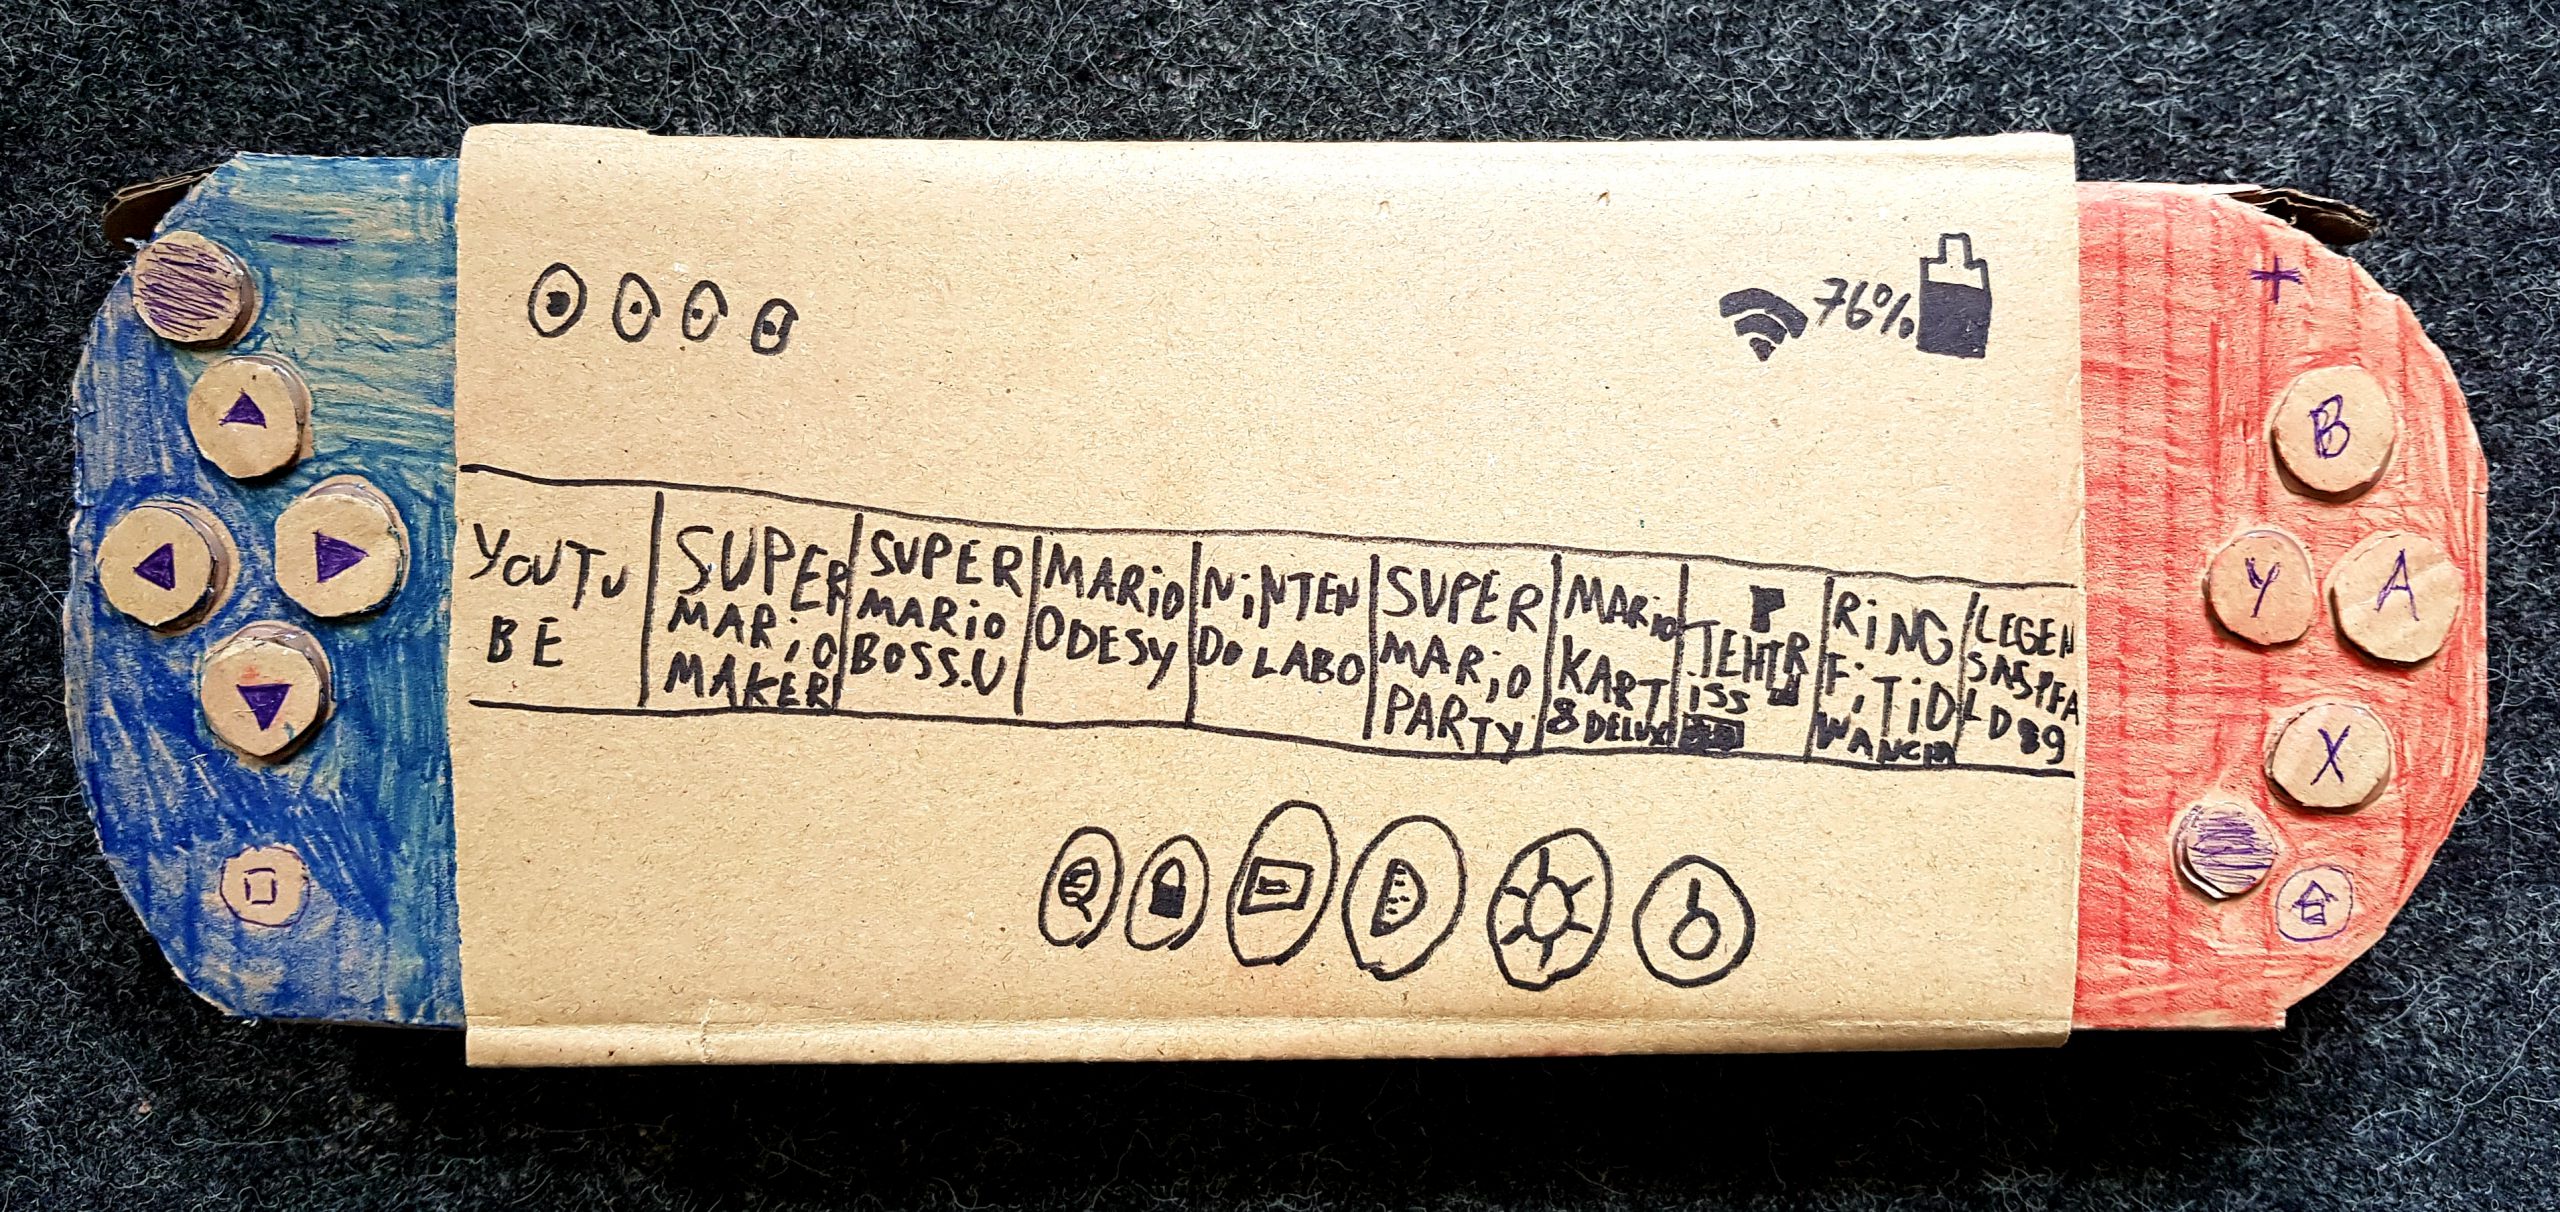 76%
YOUTU
BE
SUPER
MARiO
MAKER
SUPER
MARiO
BOSS.U
MARiO
ODESY
NiNTEN
DO LABO
SUPER
MARiO
PARTY
MARiO
KART
8 DELUX
TEHTR
iSS
RiNG
FiTiD
LEGEN
LD 89
B
Y
A
X